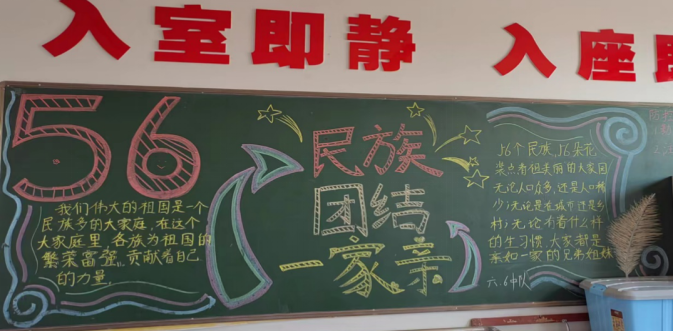 入室即静
入座即
56
我们伟大的祖国是一个
民族多的大家庭,在这个
大家庭里,各族为祖国的
繁荣富强,贡献着自己
的力量.
民族
团结
一家亲
56个民族,56朵花
装点着祖美丽的大家园
无论人口众多,还是人口稀
少;无论是在城市还是乡
村;无论有着什么样
的生习惯,大家都是
亲如一家的兄弟姐妹
六.6中队